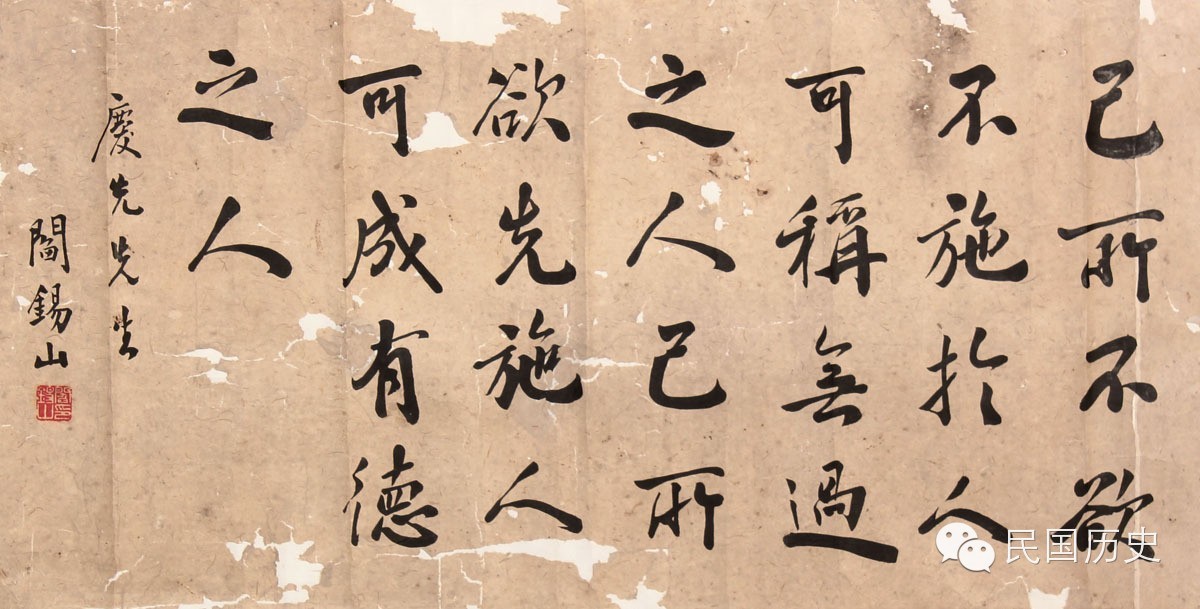 己所不欲
不施於人
可稱無過
之人己所
欲先施人
可成有德
之人
慶先先生
閻錫山
民国历史